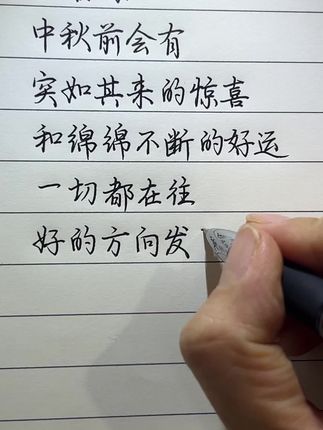 中秋前会有
突如其来的惊喜
和绵绵不断的好运
一切都在往
好的方向发